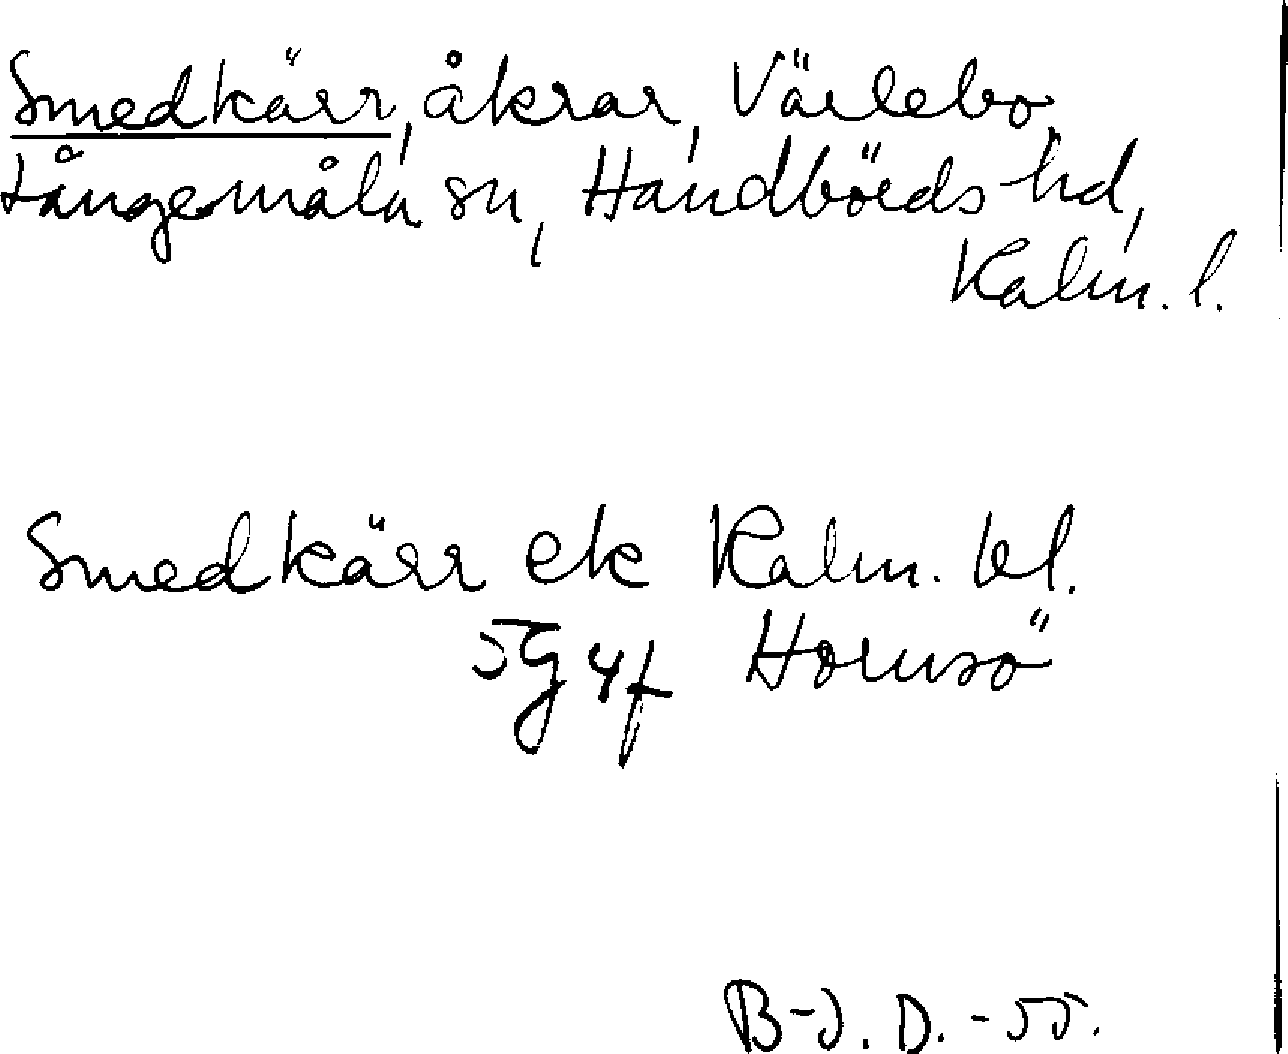 Smedkärr, åkrar, Värlebo,
Långemåla sn, Handbörds hd,
Kalm. l.
Smedkärr ek Kalm. bl.
5G4f Hornsö
B-J. D. -55.